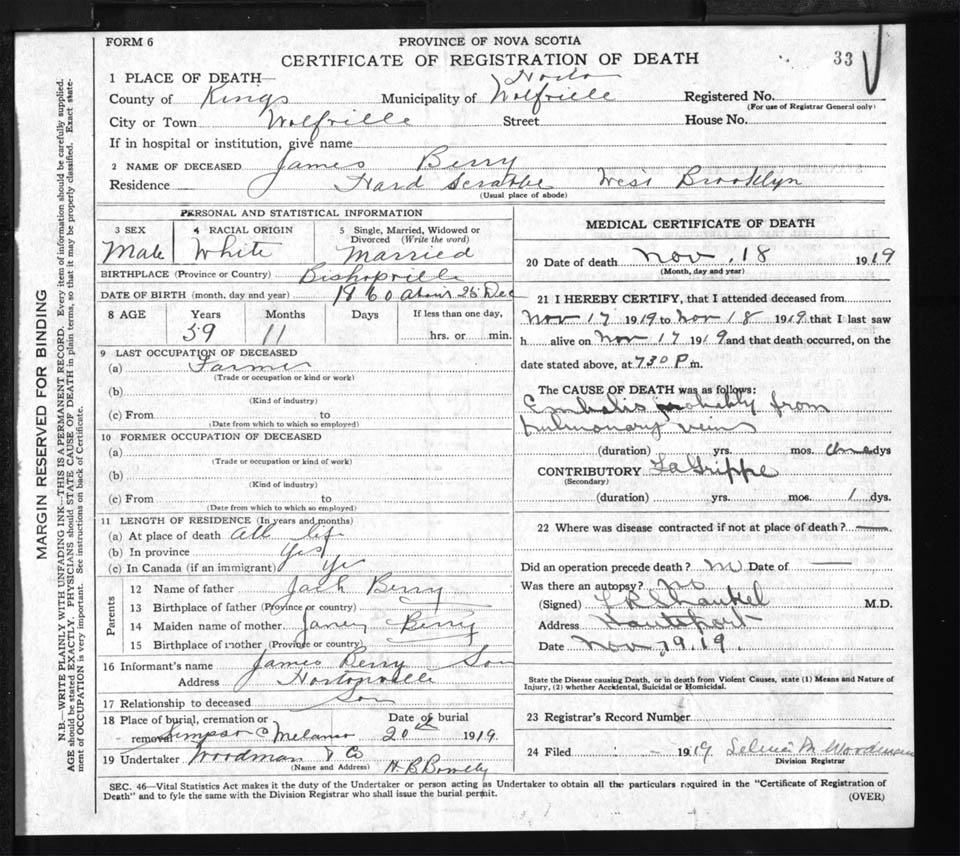 FORM 6
PROVINCE OF NOVA SCOTIA
CERTIFICATE OF REGISTRATION OF DEATH
33
1 PLACE OF DEATH—
Horton
County of Kings Municipality of Wolfville Registered No.
(For use of Registrar General only)
City or Town Wolfville Street House No.
If in hospital or institution, give name
2 NAME OF DECEASED James Berry
Residence Hard West Brooklyn
(Usual place of abode)
PERSONAL AND STATISTICAL INFORMATION
3 SEX Male
4 RACIAL ORIGIN White
5 Single, Married, Widowed or Divorced (Write the word) Married
BIRTHPLACE (Province or Country) Bishopville
DATE OF BIRTH (month, day and year) 1860 about 25 Dec
8 AGE Years Months Days If less than one day,
59 11 hrs. or min.
9 LAST OCCUPATION OF DECEASED
(a) Farmer
(Trade or occupation or kind or work)
(b)
(Kind of industry)
(c) From to
(Date from which to which so employed)
10 FORMER OCCUPATION OF DECEASED
(a)
(Trade or occupation or kind of work)
(b)
(Kind of industry)
(c) From to
(Date from which to which so employed)
11 LENGTH OF RESIDENCE (In years and months)
(a) At place of death all life
(b) In province Yes
(c) In Canada (if an immigrant) Yes
Parents
12 Name of father Jack Berry
13 Birthplace of father (Province or country)
14 Maiden name of mother Berry
15 Birthplace of mother (Province or country)
16 Informant's name James Berry Son
Address Hortonville
17 Relationship to deceased Son
18 Place of burial, cremation or Date of burial
removal Simpson 20th 1919.
19 Undertaker Woodman & Co
(Name and Address) H.B.
MEDICAL CERTIFICATE OF DEATH
20 Date of death Nov. 18 1919
(Month, day and year)
21 I HEREBY CERTIFY, that I attended deceased from
Nov 17 1919 to Nov 18 1919 that I last saw
h alive on Nov 17 1919 and that death occurred, on the
date stated above, at 730 P m.
The CAUSE OF DEATH was as follows:
Embolis probably from
pulmonary veins
(duration) yrs. mos. one dys
CONTRIBUTORY La Grippe
(Secondary)
(duration) yrs. mos. 1 dys.
22 Where was disease contracted if not at place of death?
Did an operation precede death? no Date of —
Was there an autopsy? no
(Signed) Shankel M.D.
Address Hantsport
Date Nov 19.19.
State the Disease causing Death, or in death from Violent Causes, state (1) Means and Nature of
Injury, (2) whether Accidental, Suicidal or Homicidal.
23 Registrar's Record Number
24 Filed - 1919 M. Woodman
Division Registrar
SEC. 46—Vital Statistics Act makes it the duty of the Undertaker or person acting as Undertaker to obtain all the particulars required in the "Certificate of Registration of
Death" and to fyle the same with the Division Registrar who shall issue the burial permit.
(OVER)
MARGIN RESERVED FOR BINDING
N.B.—WRITE PLAINLY WITH UNFADING INK—THIS IS A PERMANENT RECORD. Every item of information should be carefully supplied.
AGE should be stated EXACTLY. PHYSICIANS should STATE CAUSE OF DEATH in plain terms, so that it may be properly classified. Exact state-
ment of OCCUPATION is very important. See instructions on back of Certificate.